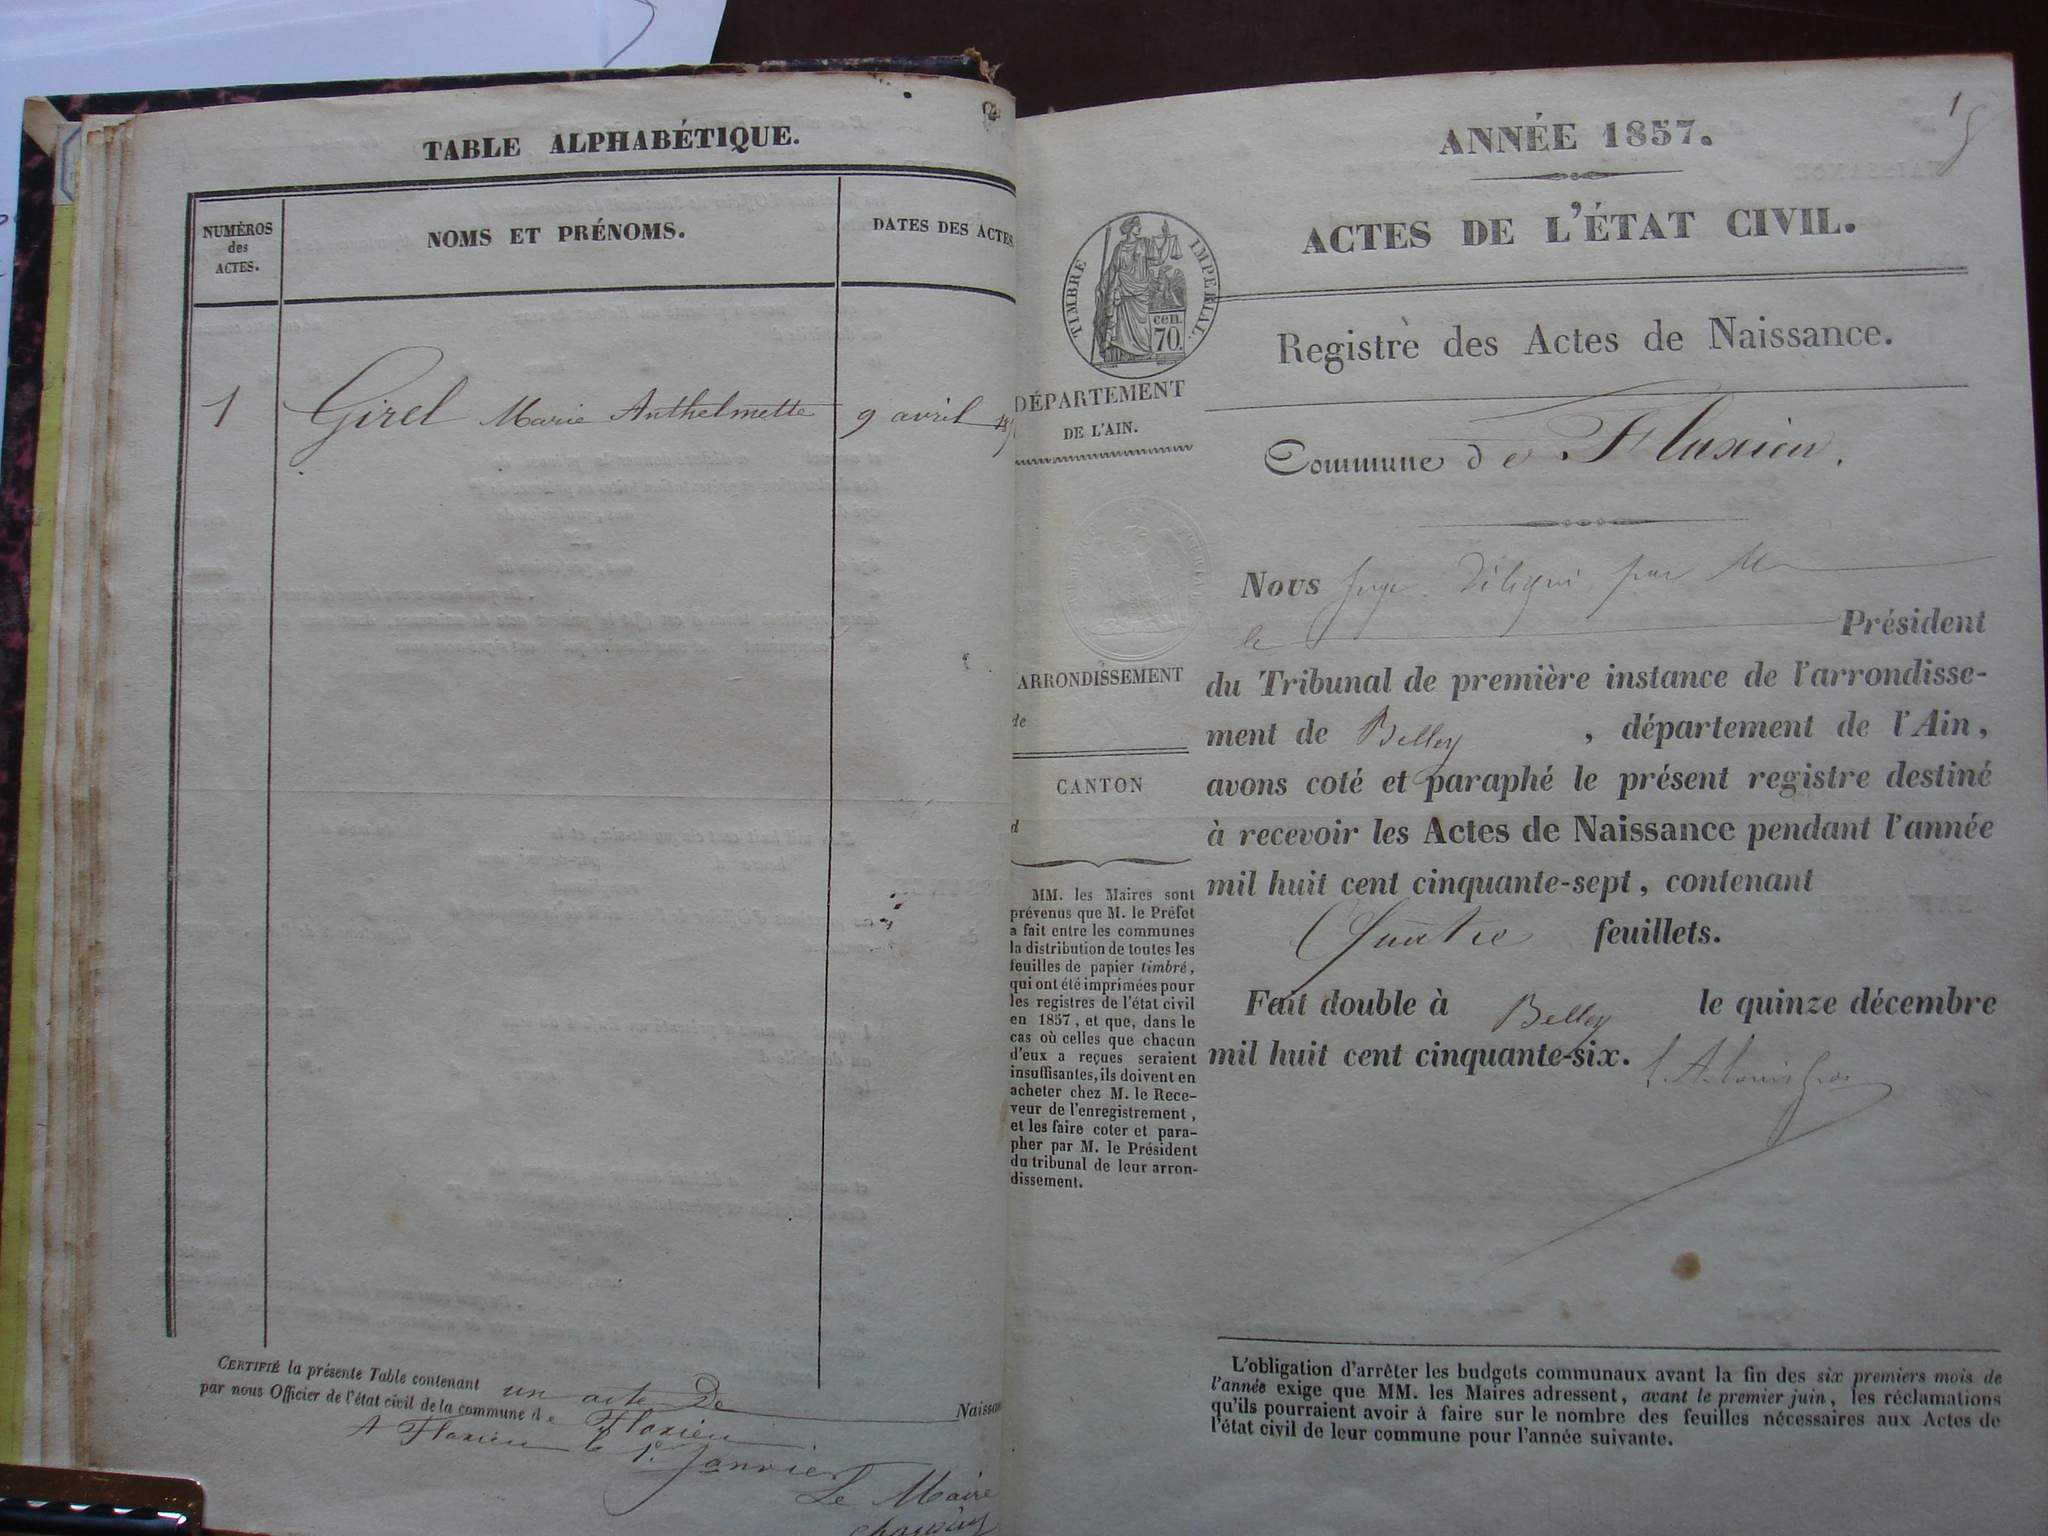 TABLE ALPHABÉTIQUE.
NUMÉROS
des
ACTES.
NOMS ET PRÉNOMS.
DATES DES ACTES.
1 Girel Marie Anthelmette 9 avril
CERTIFIÉ la présente Table contenant un acte de Naissan
par nous Officier de l'état civil de la commune de Flaxieu
A Flaxieu le 1er Janvier
Le Maire
1
ANNÉE 1857.
ACTES DE L'ÉTAT CIVIL.
TIMBRE IMPERIAL.
cen.
70.
Registre des Actes de Naissance.
DÉPARTEMENT
DE L'AIN.
Commune de Flaxieu.
Nous Juge délégué par M
le Président
du Tribunal de première instance de l'arrondisse-
ment de Belley, département de l'Ain,
avons coté et paraphé le présent registre destiné
à recevoir les Actes de Naissance pendant l'année
mil huit cent cinquante-sept, contenant
Quatre feuillets.
Fait double à Belley le quinze décembre
mil huit cent cinquante-six.
ARRONDISSEMENT
de
CANTON
d
MM. les Maires sont
prévenus que M. le Préfet
a fait entre les communes
la distribution de toutes les
feuilles de papier timbré,
qui ont été imprimées pour
les registres de l'état civil
en 1857, et que, dans le
cas où celles que chacun
d'eux a reçues seraient
insuffisantes, ils doivent en
acheter chez M. le Rece-
veur de l'enregistrement,
et les faire coter et para-
pher par M. le Président
du tribunal de leur arron-
dissement.
L'obligation d'arrêter les budgets communaux avant la fin des six premiers mois de
l'année exige que MM. les Maires adressent, avant le premier juin, les réclamations
qu'ils pourraient avoir à faire sur le nombre des feuilles nécessaires aux Actes de
l'état civil de leur commune pour l'année suivante.